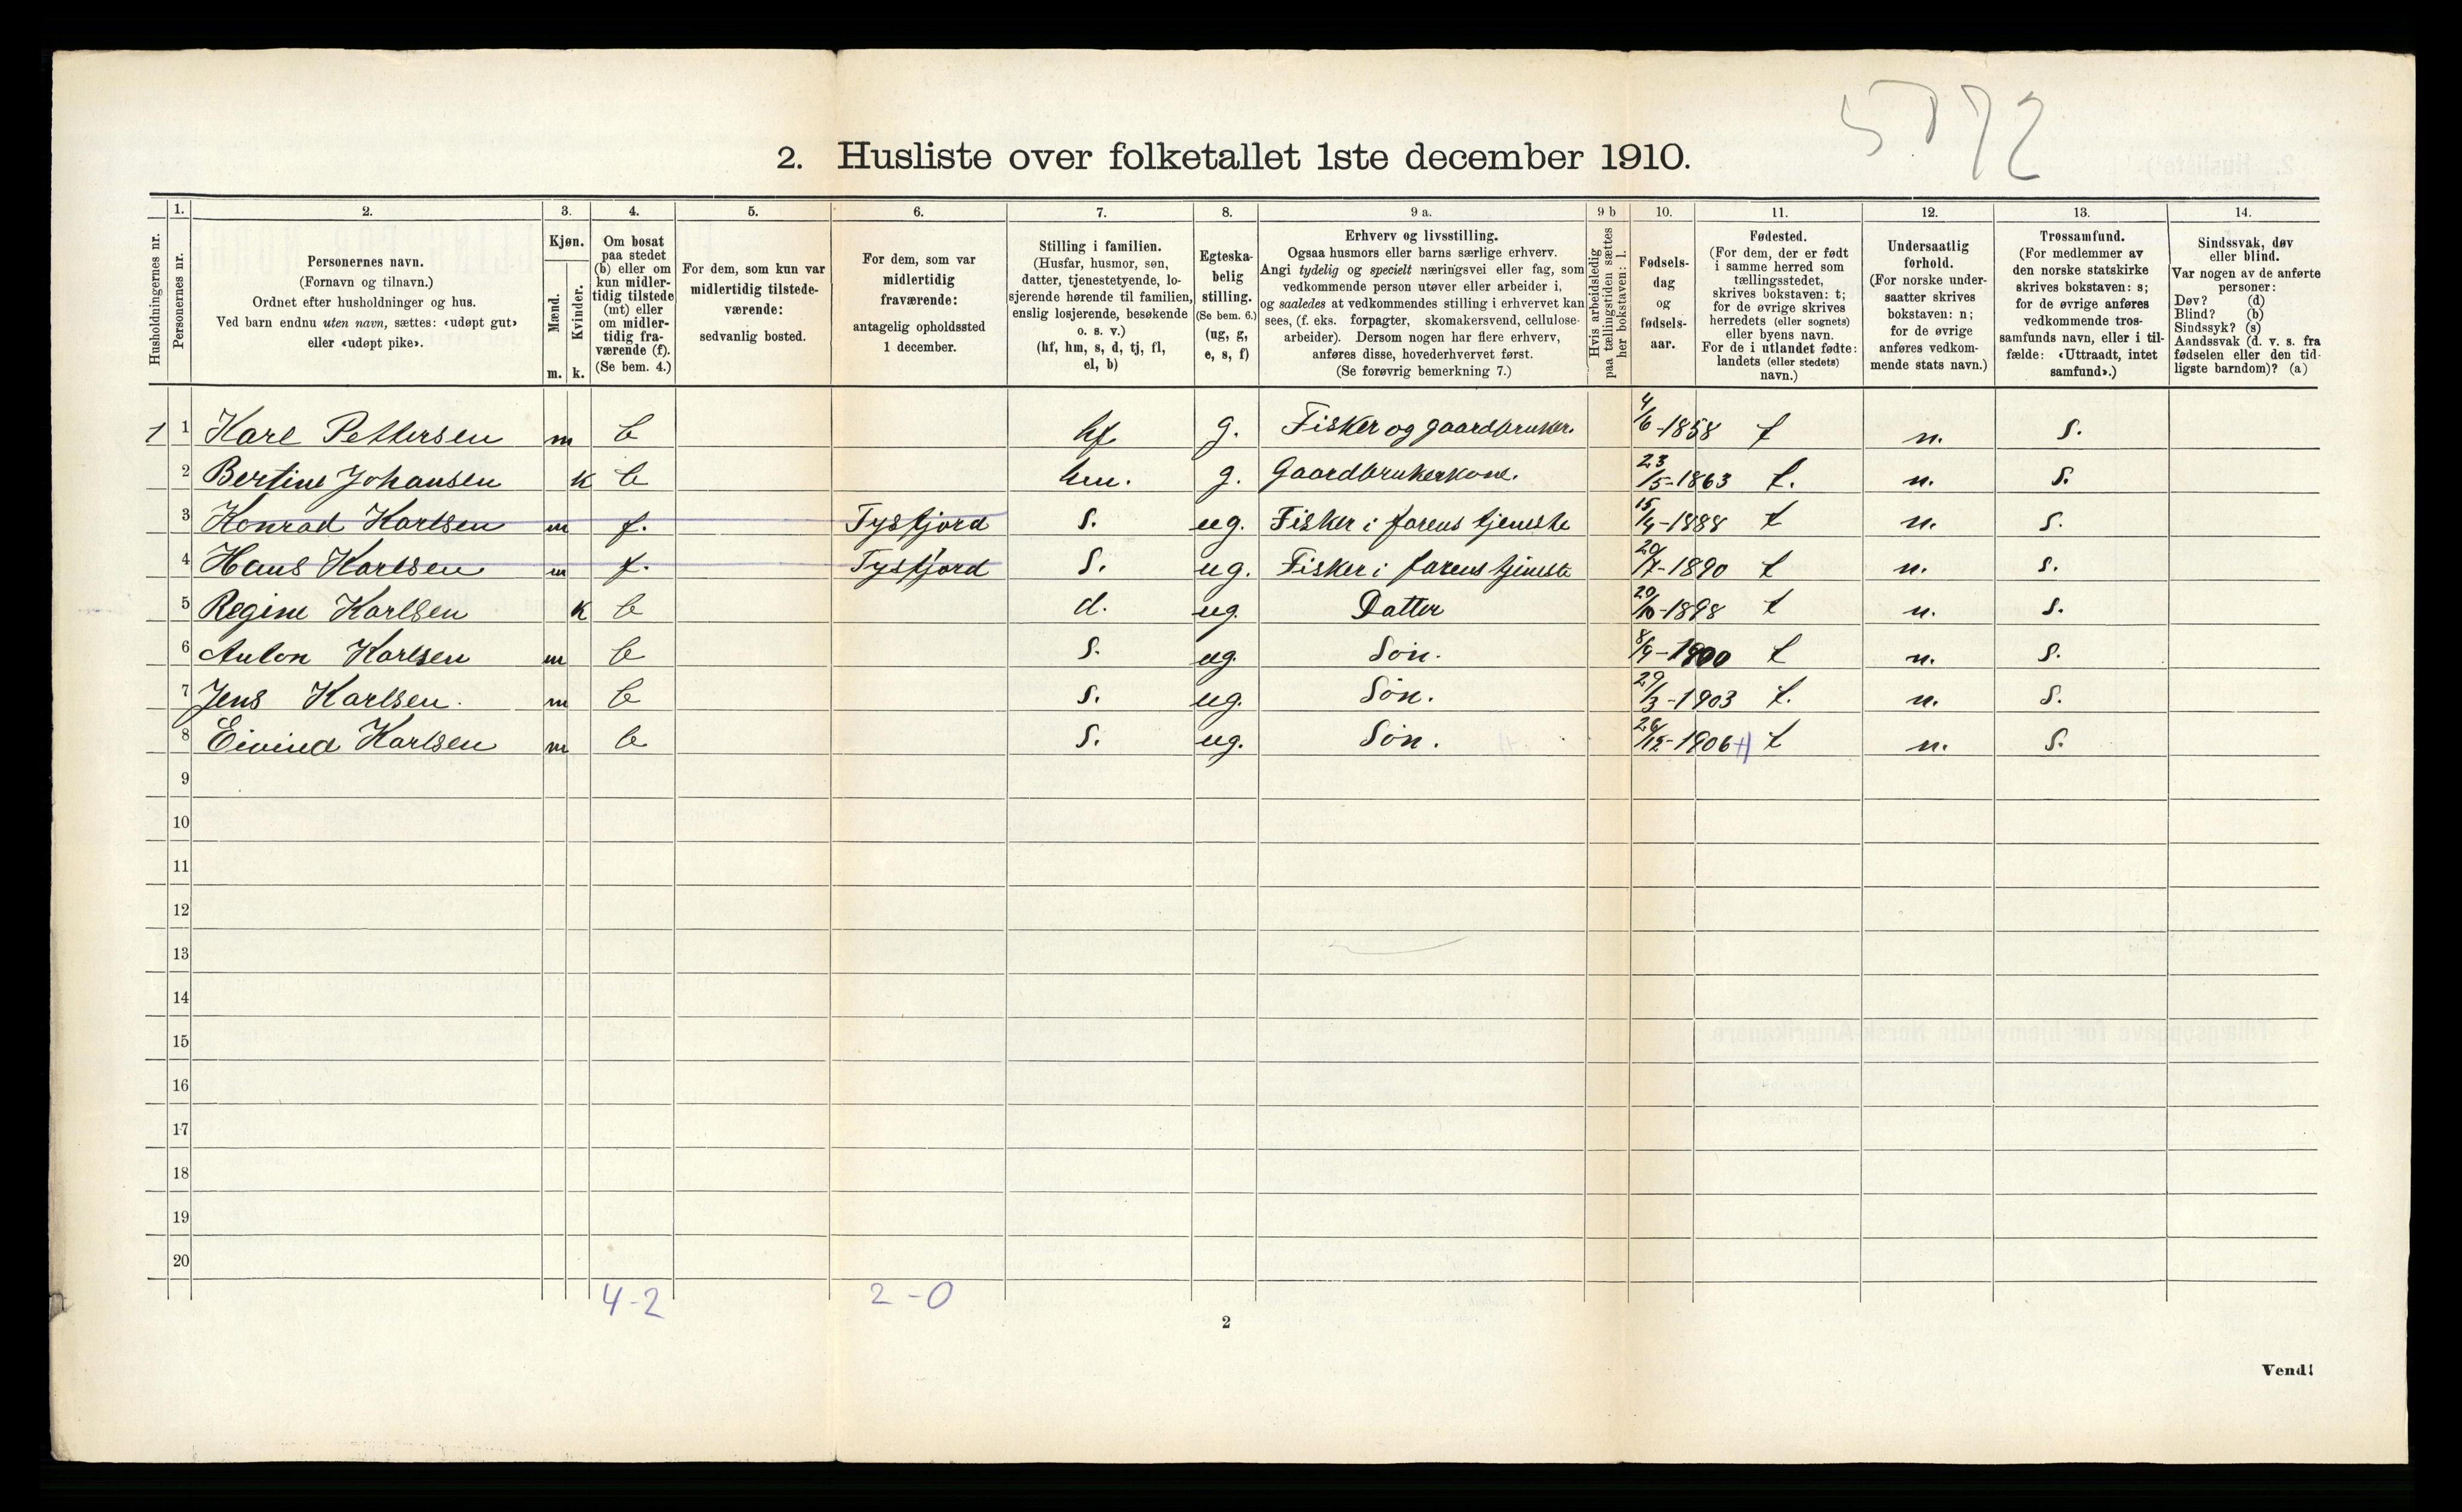 5772
2. Husliste over folketallet 1ste december 1910.
1. 2. 3. 4. 5. 6. 7. 8. 9 a. 9 b 10. 11. 12. 13. 14.
Husholdningernes nr.
Personernes nr.
Personernes navn.
(Fornavn og tilnavn.)
Ordnet efter husholdninger og hus.
Ved barn endnu uten navn, sættes: «udøpt gut»
eller «udøpt pike».
Kjøn.
Mænd.
Kvinder.
m. k.
Om bosat
paa stedet
(b) eller om
kun midler-
tidig tilstede
(mt) eller
om midler-
tidig fra-
værende (f).
(Se bem. 4.)
For dem, som kun var
midlertidig tilstede-
værende:
sedvanlig bosted.
For dem, som var
midlertidig
fraværende:
antagelig opholdssted
1 december.
Stilling i familien.
(Husfar, husmor, søn,
datter, tjenestetyende, lo-
sjerende hørende til familien,
enslig losjerende, besøkende
o. s. v.)
(hf, hm, s, d, tj, fl,
el, b)
Egteska-
belig
stilling.
(Se bem. 6.)
(ug, g,
e, s, f)
Erhverv og livsstilling.
Ogsaa husmors eller barns særlige erhverv.
Angi tydelig og specielt næringsvei eller fag, som
vedkommende person utøver eller arbeider i,
og saaledes at vedkommendes stilling i erhvervet kan
sees, (f. eks. forpagter, skomakersvend, cellulose-
arbeider). Dersom nogen har flere erhverv,
anføres disse, hovederhvervet først.
(Se forøvrig bemerkning 7.)
Hvis arbeidsledig
paa tællingstiden sættes
her bokstaven: l.
Fødsels-
dag
og
fødsels-
aar.
Fødested.
(For dem, der er født
i samme herred som
tællingsstedet,
skrives bokstaven: t;
for de øvrige skrives
herredets (eller sognets)
eller byens navn.
For de i utlandet fødte:
landets (eller stedets)
navn.)
Undersaatlig
forhold.
(For norske under-
saatter skrives
bokstaven: n;
for de øvrige
anføres vedkom-
mende stats navn.)
Trossamfund.
(For medlemmer av
den norske statskirke
skrives bokstaven: s;
for de øvrige anføres
vedkommende tros-
samfunds navn, eller i til-
fælde: «Uttraadt, intet
samfund».)
Sindssvak, døv
eller blind.
Var nogen av de anførte
personer:
Døv? (d)
Blind? (b)
Sindssyk? (s)
Aandssvak (d. v. s. fra
fødselen eller den tid-
ligste barndom)? (a)
1 1 Karl Pettersen m b hf g. Fisker og gaardbruker. 4/6-1858 t n. s.
2 Bertine Johansen k b hm. g. Gaardbrukerkone. 23/5-1863 t. n. s.
3 Konrad Karlsen m f. Tysfjord s. ug. Fisker i farens tjeneste 15/4-1888 t n. s.
4 Hans Karlsen m f. Tysfjord s. ug. Fisker i farens tjeneste 20/7-1890 t n. s.
5 Regine Karlsen k b d. ug. Datter 20/10-1898 t n. s.
6 Anton Karlsen m b s. ug. Søn. 8/9-1900 t n. s.
7 Jens Karlsen. m b s. ug. Søn. 29/3-1903 t. n. s.
8 Eivind Karlsen m b s. ug. Søn. 26/12-1906 t n. s.
9
10
11
12
13
14
15
16
17
18
19
20
4-2 2-0
2
Vend!